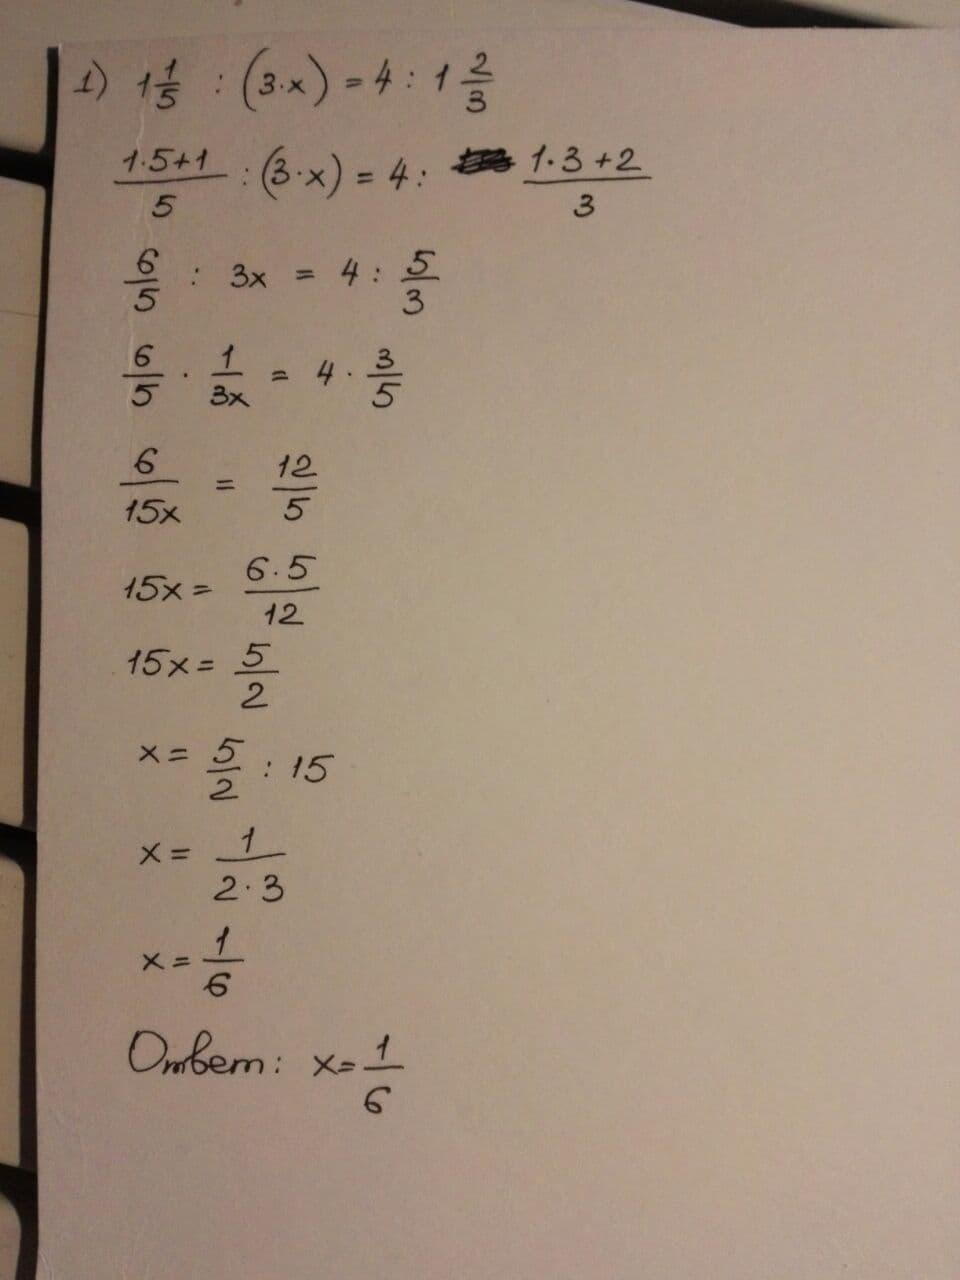 1) 1 1/5 : (3·x) = 4 : 1 2/3
1·5+1/5 : (3·x) = 4 : 1·3+2/3
6/5 : 3x = 4 : 5/3
6/5 · 1/3x = 4 · 3/5
6/15x = 12/5
15x = 6·5/12
15x = 5/2
x = 5/2 : 15
x = 1/2·3
x = 1/6
Ответ: x = 1/6